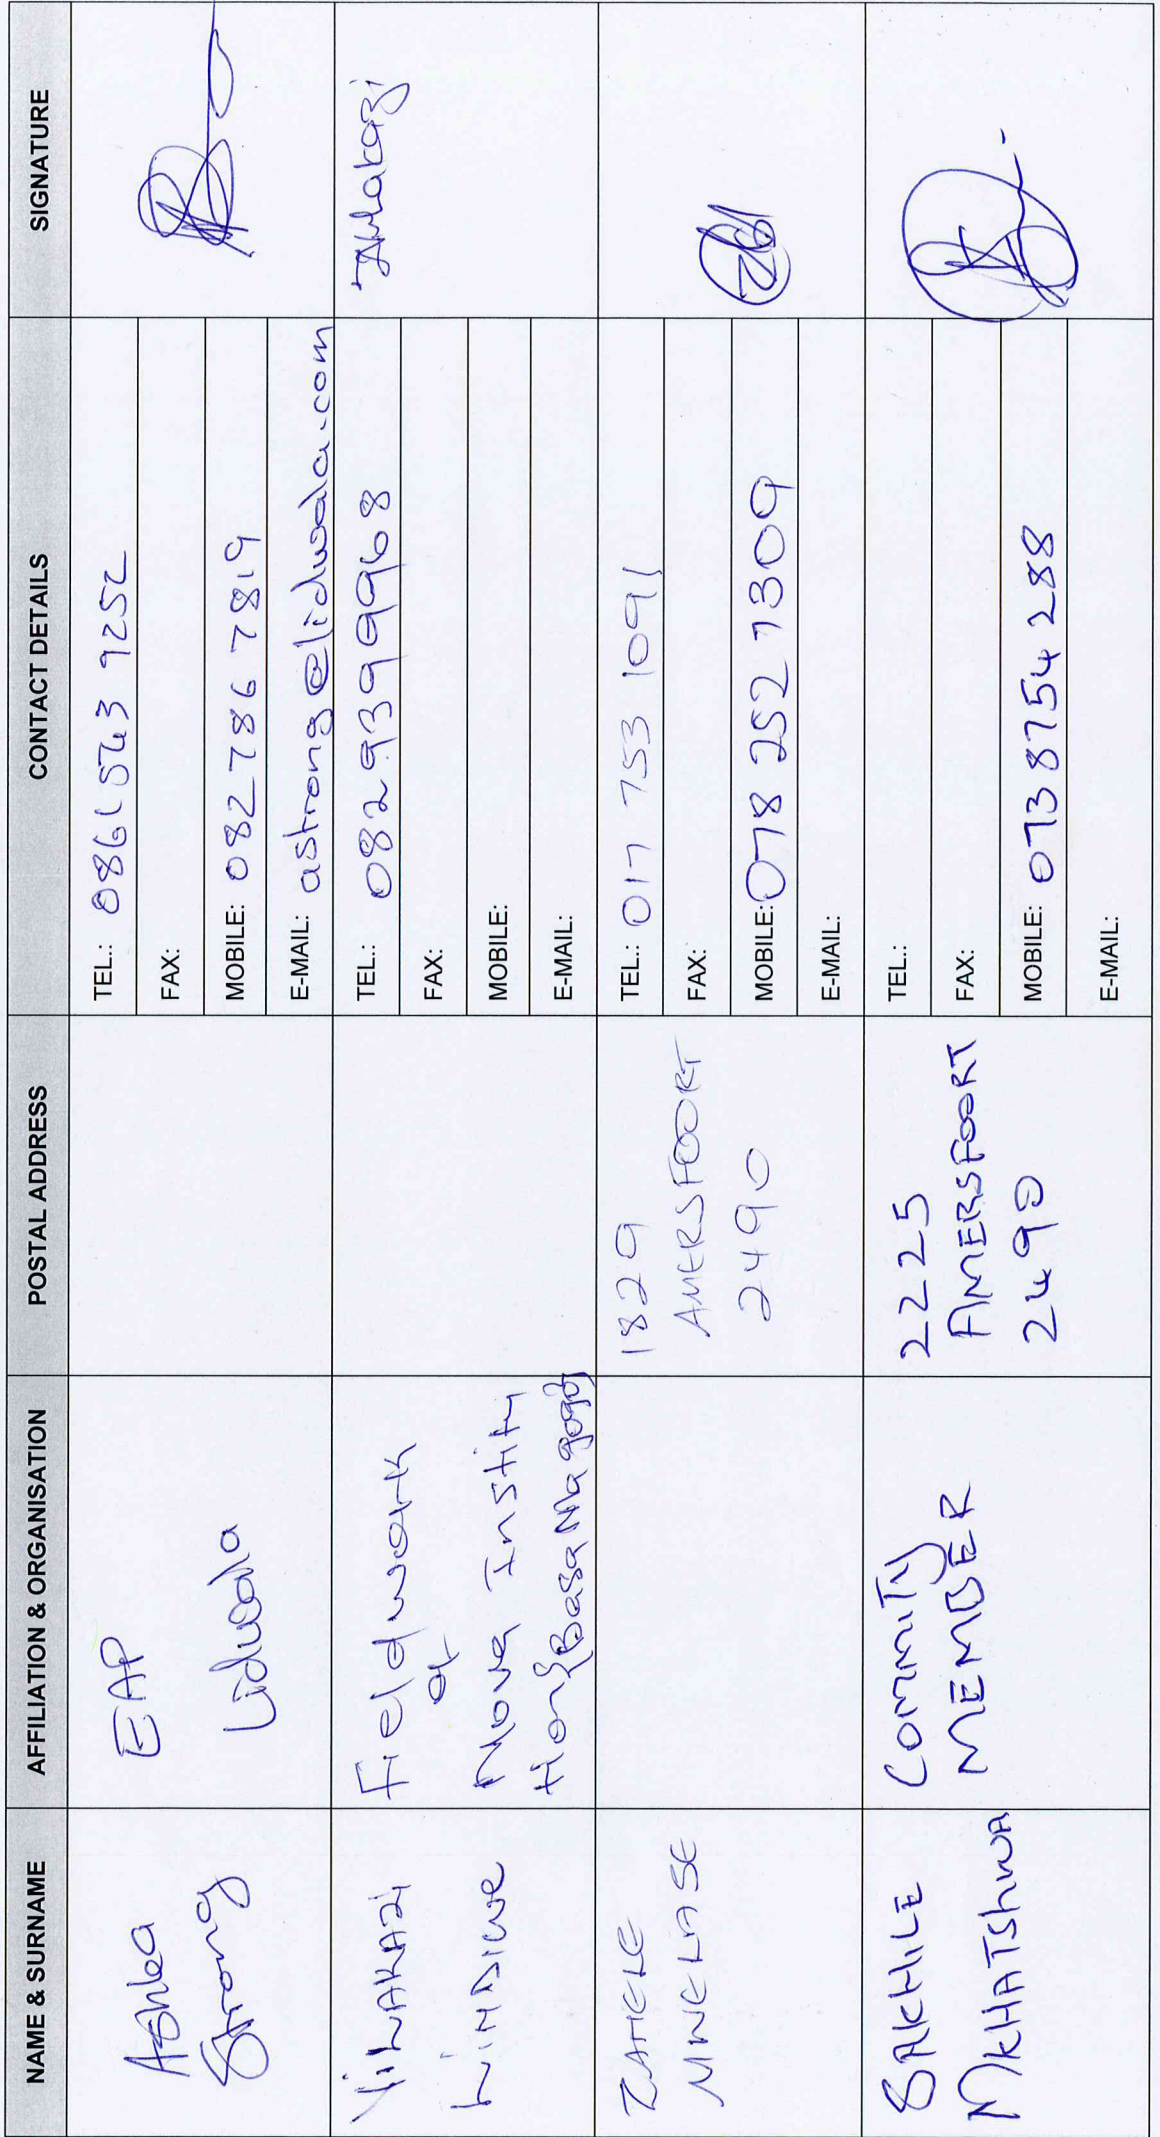 NAME & SURNAME
AFFILIATION & ORGANISATION
POSTAL ADDRESS
CONTACT DETAILS
SIGNATURE
Ashlea
Strong
EAP
Lidwala
TEL.: 0861 543 9252
FAX:
MOBILE: 082 786 7819
E-MAIL: astrong@lidwala.com
Field work
at
Nova Institu
tion {Basa Magogo}
TEL.: 0829399968
FAX:
MOBILE:
E-MAIL:
ZAMELE
MNELASE
1829
AMERSFOORT
2490
TEL.: 017 753 1091
FAX:
MOBILE: 078 252 1309
E-MAIL:
SAKHILE
MKHATSHWA
COMMITY
MEMBER
2225
AMERSFOORT
2490
TEL.:
FAX:
MOBILE: 073 8754 288
E-MAIL: